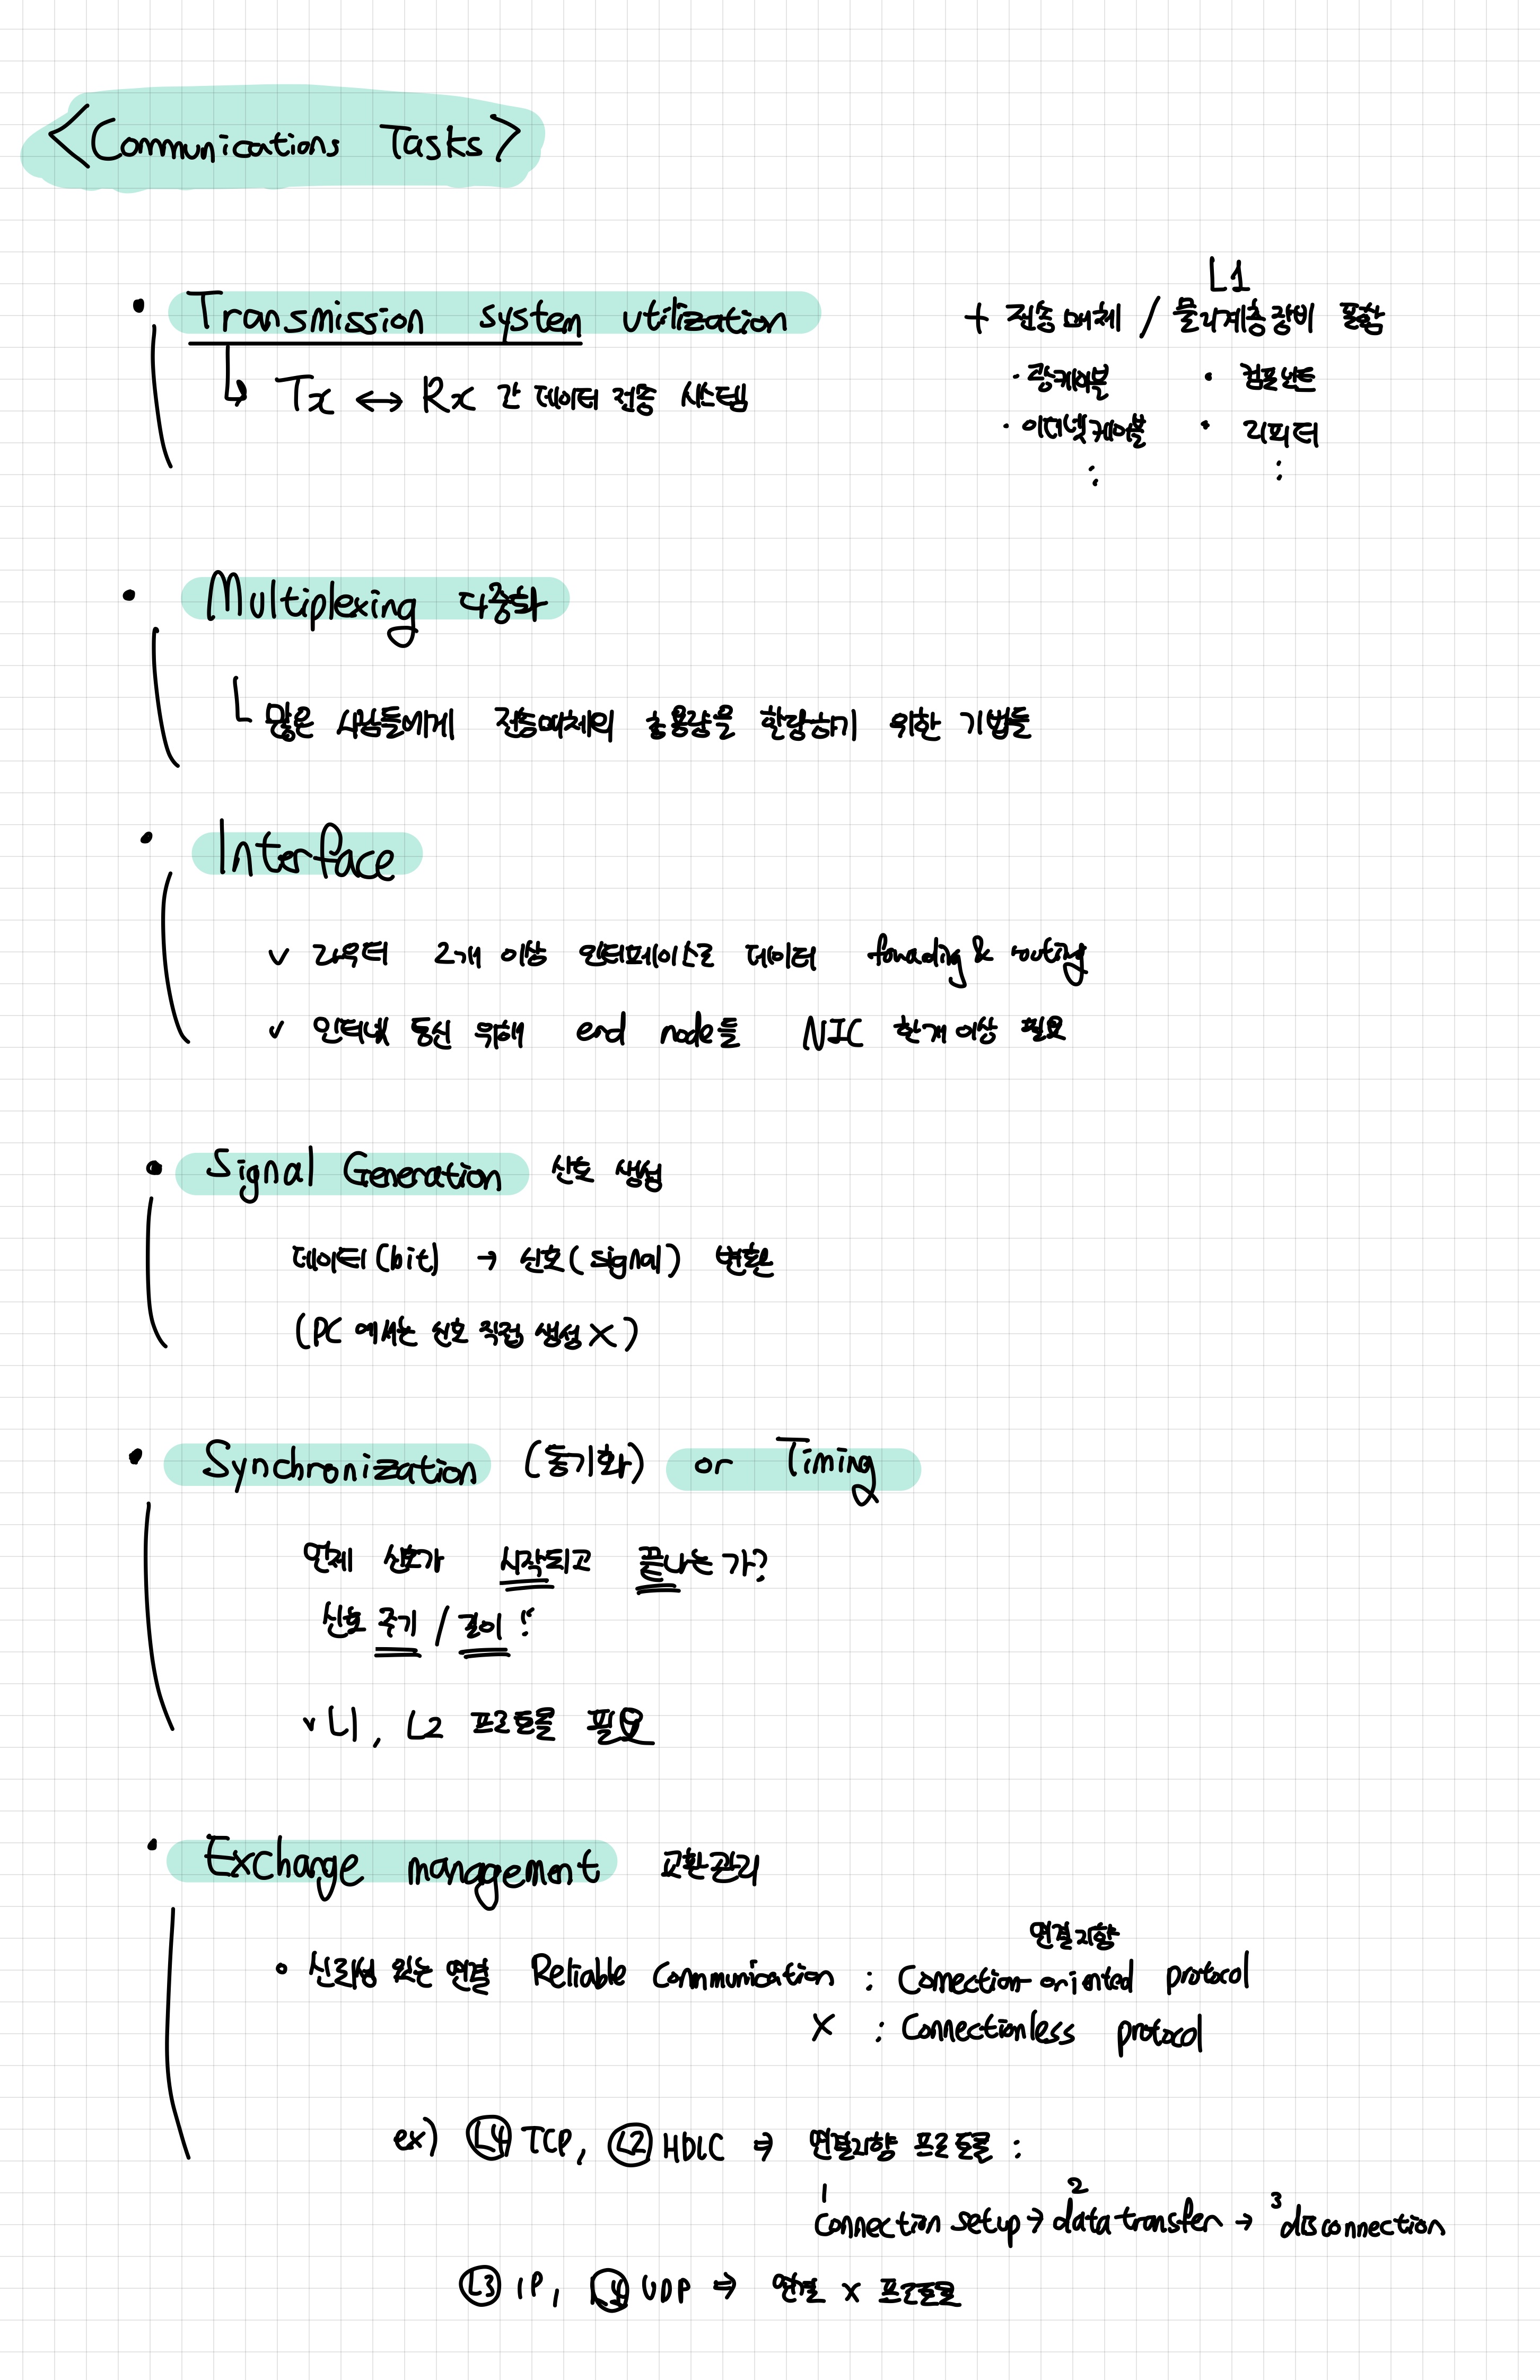 <Communications Tasks>
• Transmission system utilization
↳ Tx ↔ Rx 간 데이터 전송 시스템
L1
+ 전송매체 / 물리계층장비 포함
· 광케이블 • 컴포넌트
· 이더넷케이블 • 리피터
: :
• Multiplexing 다중화
└ 많은 사람들에게 전송매체의 총용량을 할당하기 위한 기법들
• Interface
✓ 라우터 2개 이상 인터페이스로 데이터 fowading & routing
✓ 인터넷 통신 위해 end node들 NIC 한개 이상 필요
• Signal Generation 신호 생성
데이터(bit) → 신호(signal) 변환
(PC 에서는 신호 직접 생성 X)
• Synchronization (동기화) or Timing
언제 신호가 시작되고 끝나는가?
신호 주기 / 길이?
✓ L1, L2 프로토콜 필요
• Exchange management 교환관리
연결지향
∘ 신뢰성 있는 연결 Reliable Communication : Connection-oriented protocol
X : Connectionless protocol
ex) L4 TCP, L2 HDLC ⇒ 연결지향 프로토콜 :
1 connection setup → 2 data transfer → 3 disconnection
L3 IP, L4 UDP ⇒ 연결 x 프로토콜